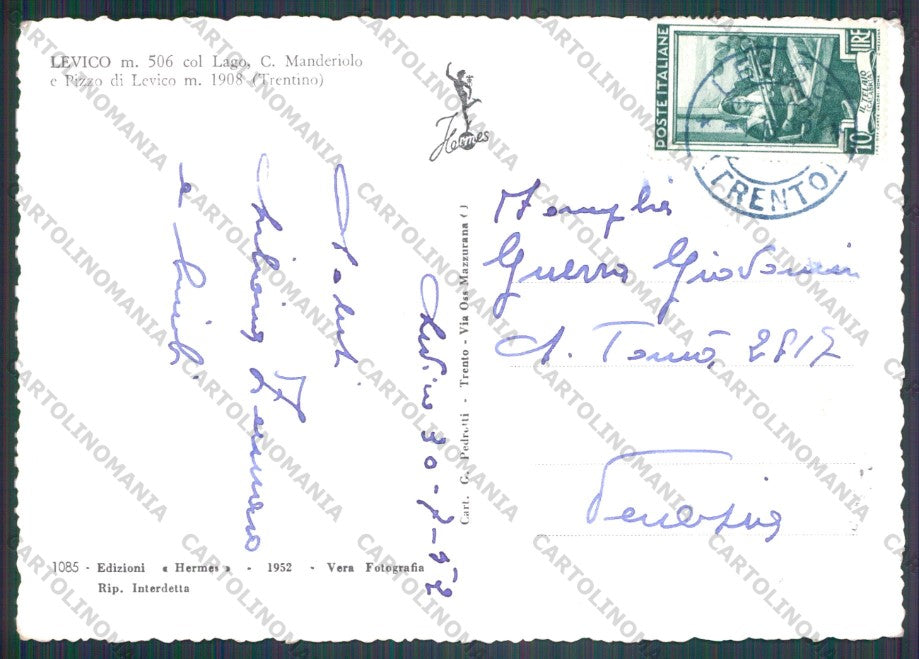 LEVICO m. 506 col Lago, C. Manderiolo
e Pizzo di Levico m. 1908 (Trentino)
Hermes
POSTE ITALIANE
LIRE
10
IL TELAIO
CALABRIA
LEVICO
(TRENTO)
Levico 30-7-52
Saluti
e
Famiglia
Guerra Giovanni
S. Tomà, 2817
Venezia
Cart. G. Pedrotti - Trento - Via Oss Mazzurana ( )
1085 - Edizioni « Hermes » - 1952 - Vera Fotografia
Rip. Interdetta
CARTOLINOMANIA